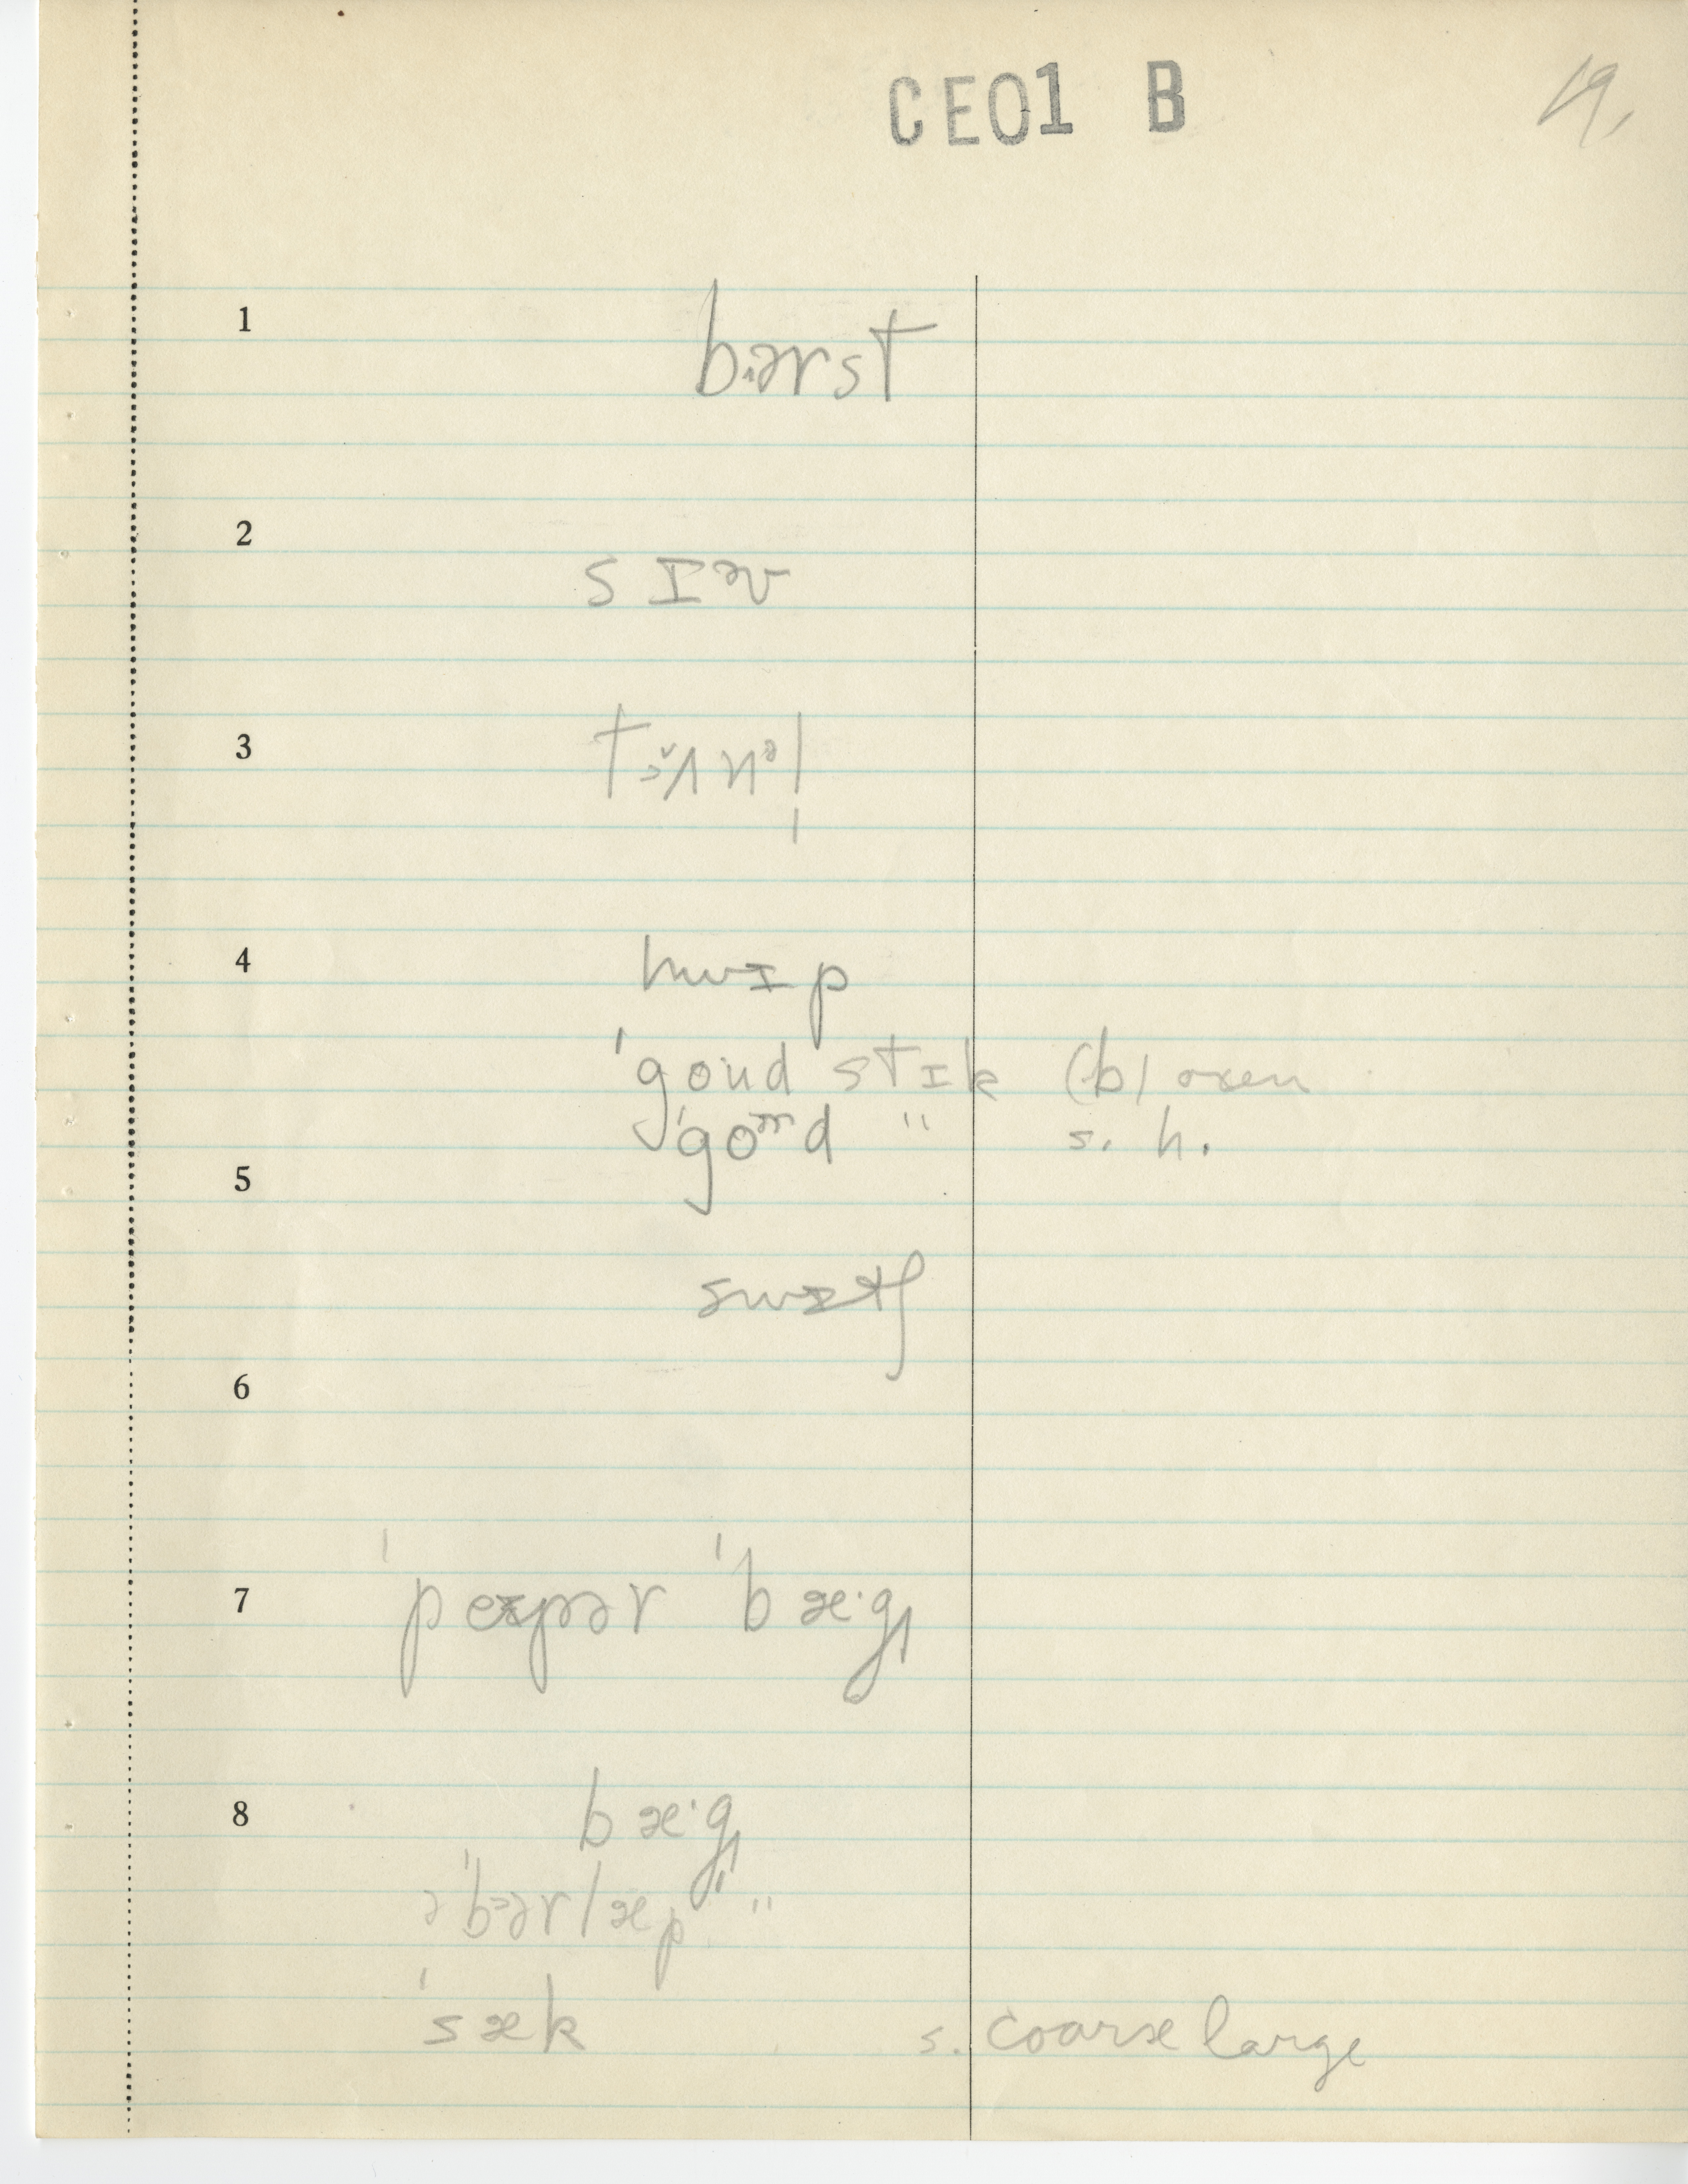 CE01 B
19,
1
bərst
2
sɪᵊv
3
4
hwɪp
'goud stɪk (b) oxen
'goᵊrd " s. h.
5
swɪtʃ
6
7
'peɪpər 'bæ·g
8
bæ·g
ə 'bərlæp "
'sæk s. coarse large